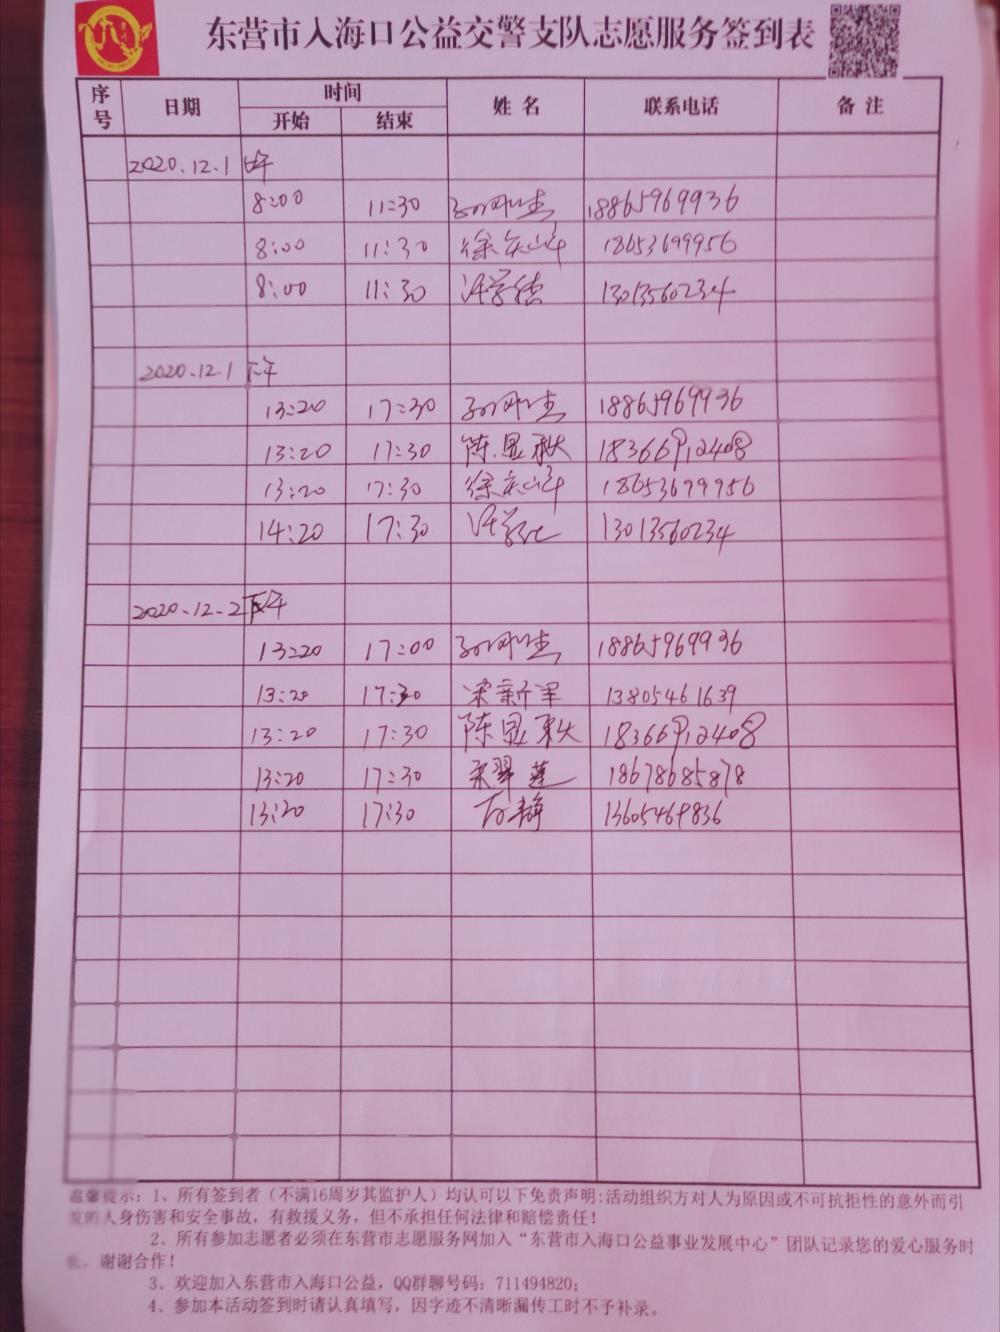 东营市入海口公益交警支队志愿服务签到表
序号 日期 时间 姓名 联系电话 备注
开始 结束
2020.12.1
8:00 11:30 18865969936
8:00 11:30 徐庆山峰 18653699956
8:00 11:30 13013560234
2020.12.1 下午
13:20 17:30 18865969936
13:20 17:30 陈显秋 18366912408
13:20 17:30 徐庆山峰 18653699956
14:20 17:30 13013560234
2020.12.2 下午
13:20 17:00 18865969936
13:20 17:30 梁新军 13805461639
13:20 17:30 陈显秋 18366912408
13:20 17:30 翠莲 18678685878
13:20 17:30 静 13605469836
温馨提示：1、所有签到者（不满16周岁其监护人）均认可以下免责声明:活动组织方对人为原因或不可抗拒性的意外而引
发的人身伤害和安全事故，有救援义务，但不承担任何法律和赔偿责任！
2、所有参加志愿者必须在东营市志愿服务网加入“东营市入海口公益事业发展中心”团队记录您的爱心服务时
长，谢谢合作！
3、欢迎加入东营市入海口公益，QQ群聊号码：711494820；
4、参加本活动签到时请认真填写，因字迹不清晰漏传工时不予补录。